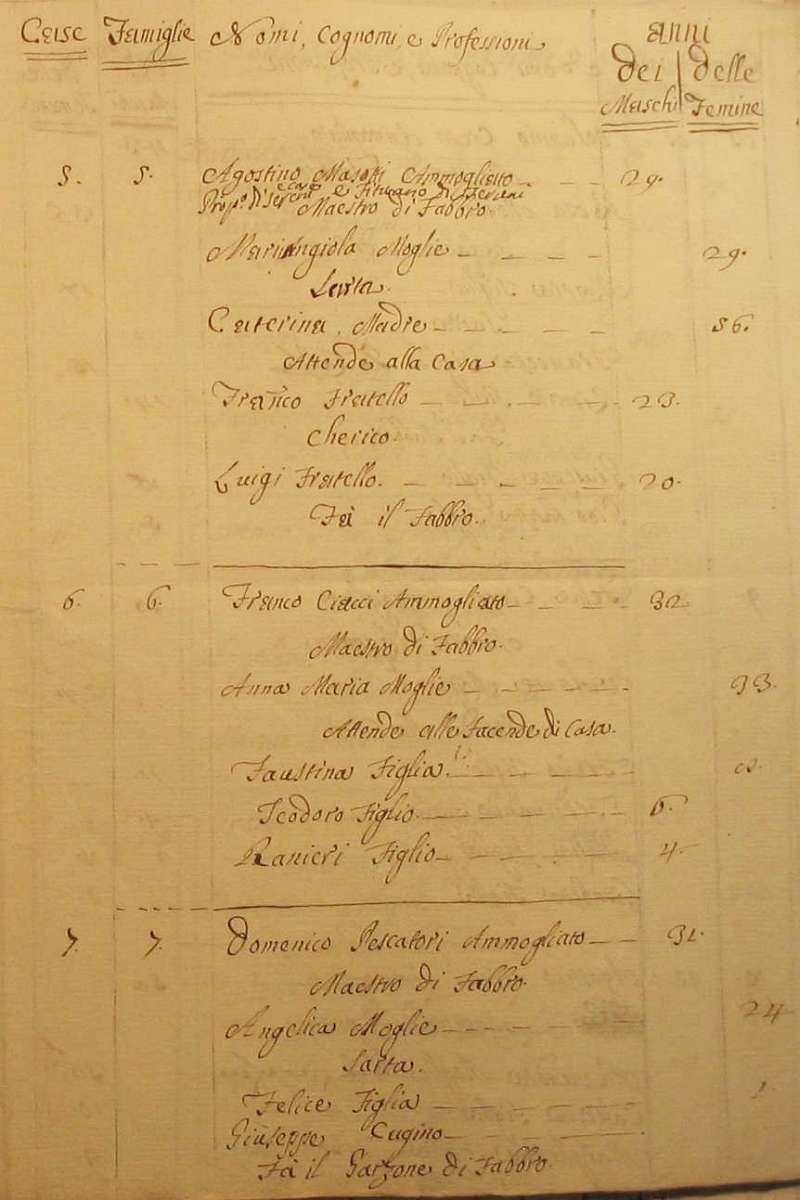 Case Famiglie Nomi, Cognomi, e Professioni anni
dei delle
Maschi Femine
5. 5. Agostino Masotti Ammogliato 29.
Maestro di Fabbro.
Mariangiola Moglie 29.
Sarta.
Caterina, Madre 56.
Attende alla Casa
Franco Fratello 23.
Cherico.
Luigi Fratello. 20.
Fà il Fabbro.
6. 6. Franco Ciacci Ammogliato 32.
Maestro di Fabbro.
Anna Maria Moglie 33.
Attende alle Facende di Casa.
Faustina Figlia.
Teodoro Figlio. 6.
Ranieri Figlio 4.
7. 7. Domenico Pescatori Ammogliato 31.
Maestro di Fabbro.
Angelica Moglie 24
Sarta.
Felice Figlia 1
Giuseppe Cugino
Fà il Garzone di Fabbro.